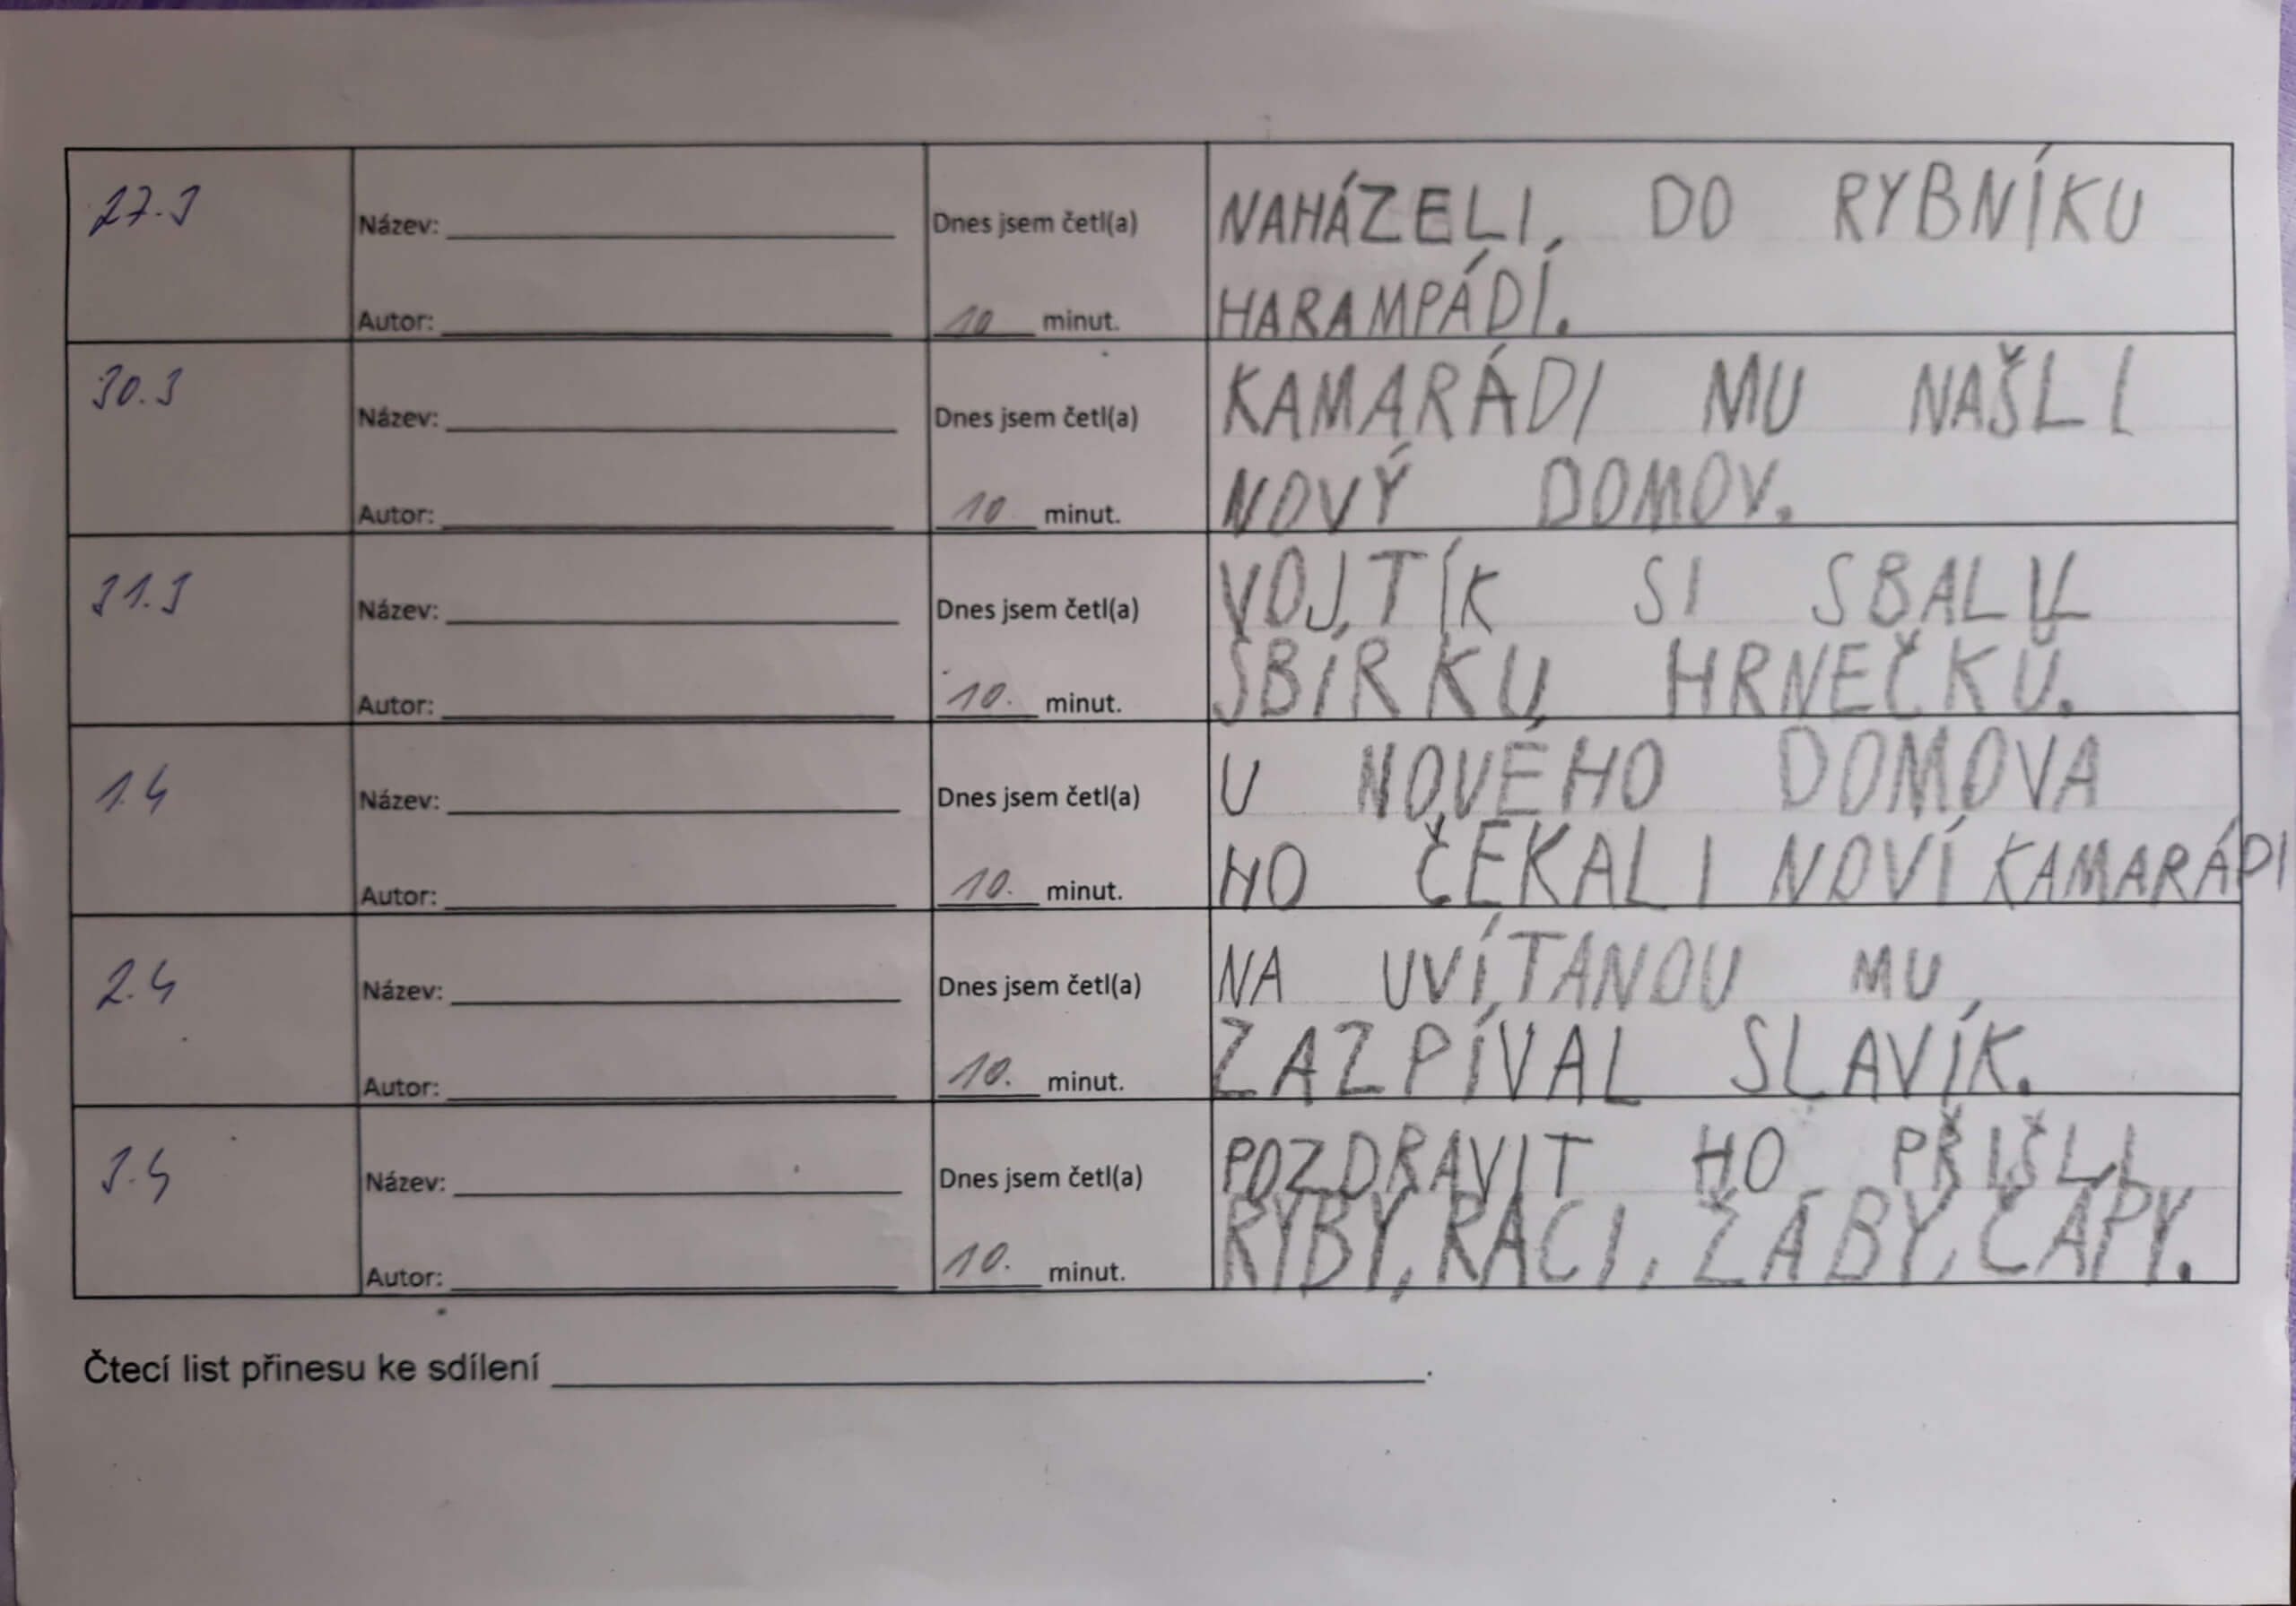 27.3
Název: Dnes jsem četl(a) NAHÁZELI, DO RYBNÍKU
Autor: 10 minut. HARAMPÁDÍ.
30.3
Název: Dnes jsem četl(a) KAMARÁDI MU NAŠLI
Autor: 10 minut. NOVÝ DOMOV.
31.3
Název: Dnes jsem četl(a) VOJTÍK SI SBALIL
Autor: 10. minut. SBÍRKU HRNEČKŮ.
1.4
Název: Dnes jsem četl(a) U NOVÉHO DOMOVA
Autor: 10. minut. HO ČEKALI NOVÍ KAMARÁDI
2.4
Název: Dnes jsem četl(a) NA UVÍTANOU MU
Autor: 10. minut. ZAZPÍVAL SLAVÍK.
3.4
Název: Dnes jsem četl(a) POZDRAVIT HO PŘIŠLI
Autor: 10. minut. RYBY, RACI, ŽÁBY, ČÁPY.
Čtecí list přinesu ke sdílení .